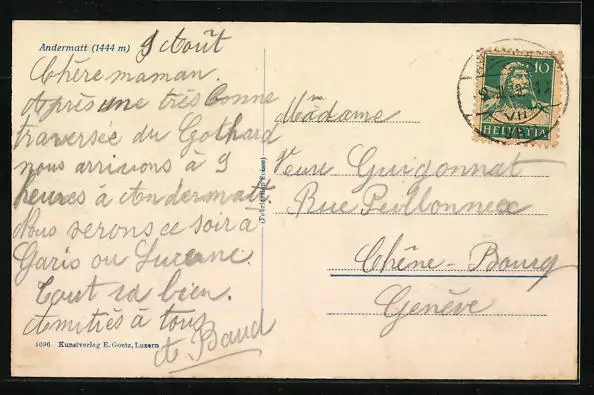 Andermatt (1444 m)
9 Août
Chère maman.
Après une très bonne
traversée du Gothard
nous arrivons à 9
heures à Andermatt.
Nous serons ce soir à
ou Lucerne.
Tout va bien.
Amitiés à tous
A Baud
1696 Kunstverlag E. Goetz, Luzern
(Fabrication Suisse)
Mme
Madame
Veuve Guigonnat
Rue Peillonnex
Chêne-Bourg
Genève
10
VII
HELVETIA